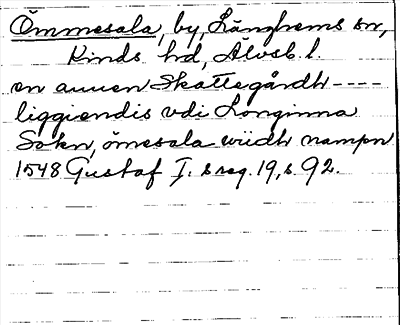 Ömmesala, by, Länghems sn,
Kinds hd, Älvsb. l.
en annen Skattegårdh ----
liggiendis vdi Longinna
Sokn, ömesala widh nampn
1548 Gustaf I:s reg. 19, s. 92.